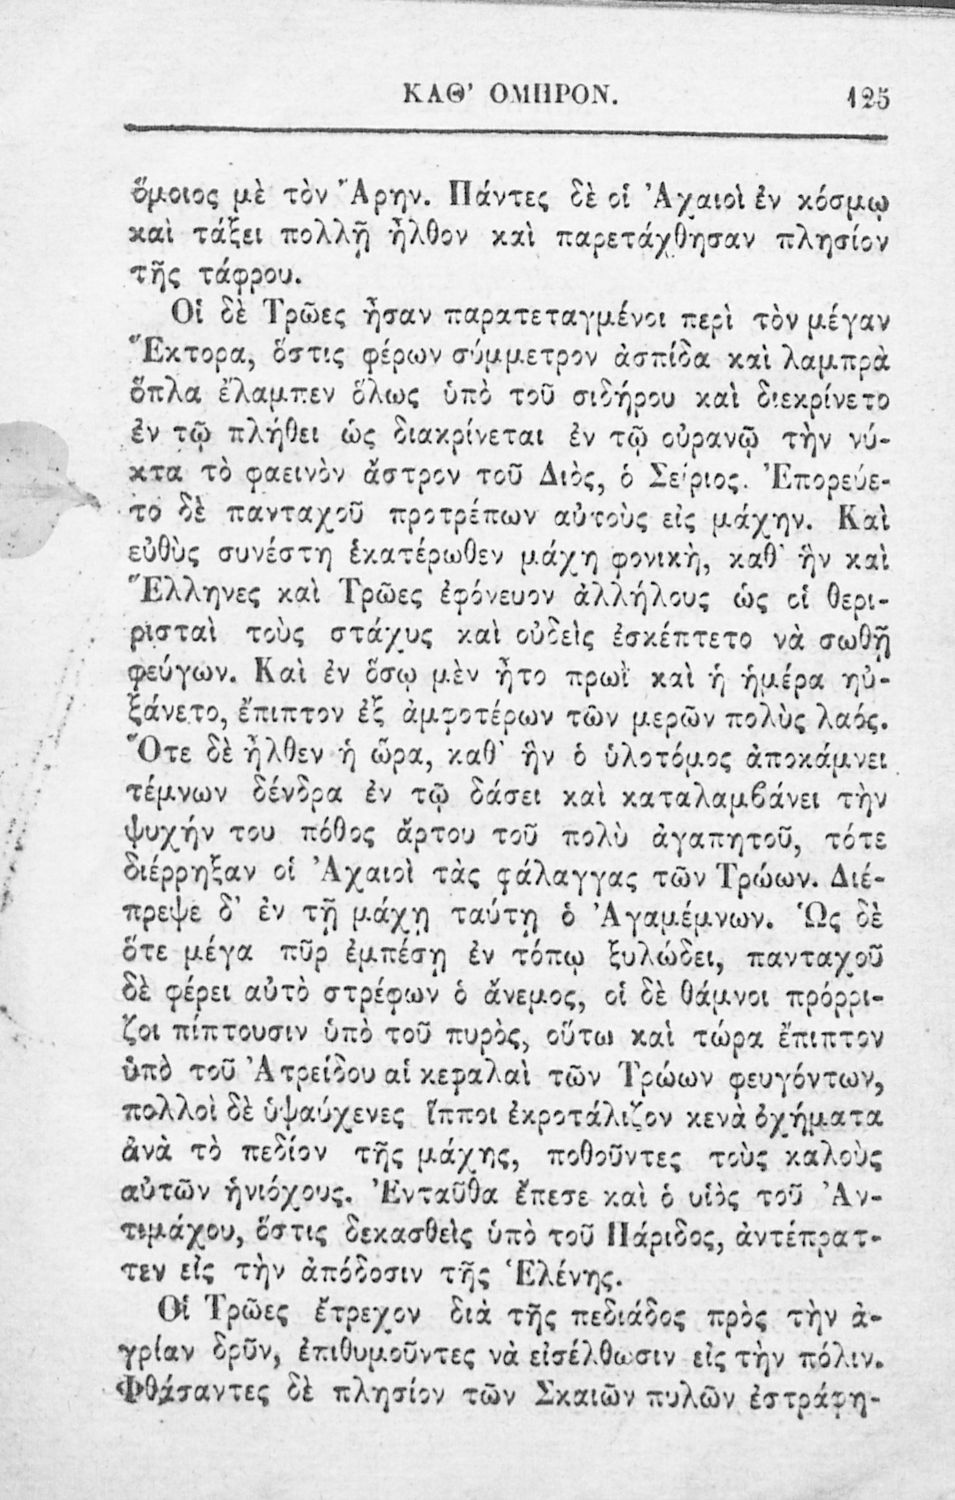 ΚΑΘ' ΟΜΗΡΟΝ. 125
ὅμοιος μὲ τὸν Ἄρην. Πάντες δὲ οἱ Ἀχαιοὶ ἐν κόσμῳ
καὶ τάξει πολλῇ ἦλθον καὶ παρετάχθησαν πλησίον
τῆς τάφρου.
Οἱ δὲ Τρῶες ἦσαν παρατεταγμένοι περὶ τὸν μέγαν
Ἕκτορα, ὅστις φέρων σύμμετρον ἀσπίδα καὶ λαμπρὰ
ὅπλα ἔλαμπεν ὅλως ὑπὸ τοῦ σιδήρου καὶ διεκρίνετο
ἐν τῷ πλήθει ὡς διακρίνεται ἐν τῷ οὐρανῷ τὴν νύ-
κτα τὸ φαεινὸν ἄστρον τοῦ Διὸς, ὁ Σείριος. Ἐπορεύε-
το δὲ πανταχοῦ προτρέπων αὐτοὺς εἰς μάχην. Καὶ
εὐθὺς συνέστη ἑκατέρωθεν μάχη φονικὴ, καθ' ἣν καὶ
Ἕλληνες καὶ Τρῶες ἐφόνευον ἀλλήλους ὡς οἱ θερι-
ρισταὶ τοὺς στάχυς καὶ οὐδεὶς ἐσκέπτετο νὰ σωθῇ
φεύγων. Καὶ ἐν ὅσῳ μὲν ἦτο πρωῒ καὶ ἡ ἡμέρα ηὐ-
ξάνετο, ἔπιπτον ἐξ ἀμφοτέρων τῶν μερῶν πολὺς λαός.
Ὅτε δὲ ἦλθεν ἡ ὥρα, καθ' ἣν ὁ ὑλοτόμος ἀποκάμνει
τέμνων δένδρα ἐν τῷ δάσει καὶ καταλαμβάνει τὴν
ψυχήν του πόθος ἄρτου τοῦ πολὺ ἀγαπητοῦ, τότε
διέρρηξαν οἱ Ἀχαιοὶ τὰς φάλαγγας τῶν Τρώων. Διέ-
πρεψε δ' ἐν τῇ μάχῃ ταύτῃ ὁ Ἀγαμέμνων. Ὡς δὲ
ὅτε μέγα πῦρ ἐμπέσῃ ἐν τόπῳ ξυλώδει, πανταχοῦ
δὲ φέρει αὐτὸ στρέφων ὁ ἄνεμος, οἱ δὲ θάμνοι πρόρρι-
ζοι πίπτουσιν ὑπὸ τοῦ πυρὸς, οὕτω καὶ τώρα ἔπιπτον
ὑπὸ τοῦ Ἀτρείδου αἱ κεφαλαὶ τῶν Τρώων φευγόντων,
πολλοὶ δὲ ὑψαύχενες ἵπποι ἐκροτάλιζον κενὰ ὀχήματα
ἀνὰ τὸ πεδίον τῆς μάχης, ποθοῦντες τοὺς καλοὺς
αὐτῶν ἡνιόχους. Ἐνταῦθα ἔπεσε καὶ ὁ υἱὸς τοῦ Ἀν-
τιμάχου, ὅστις δεκασθεὶς ὑπὸ τοῦ Πάριδος, ἀντέπρατ-
τεν εἰς τὴν ἀπόδοσιν τῆς Ἑλένης.
Οἱ Τρῶες ἔτρεχον διὰ τῆς πεδιάδος πρὸς τὴν ἀ-
γρίαν δρῦν, ἐπιθυμοῦντες νὰ εἰσέλθωσιν εἰς τὴν πόλιν.
Φθάσαντες δὲ πλησίον τῶν Σκαιῶν πυλῶν ἐστράφη-